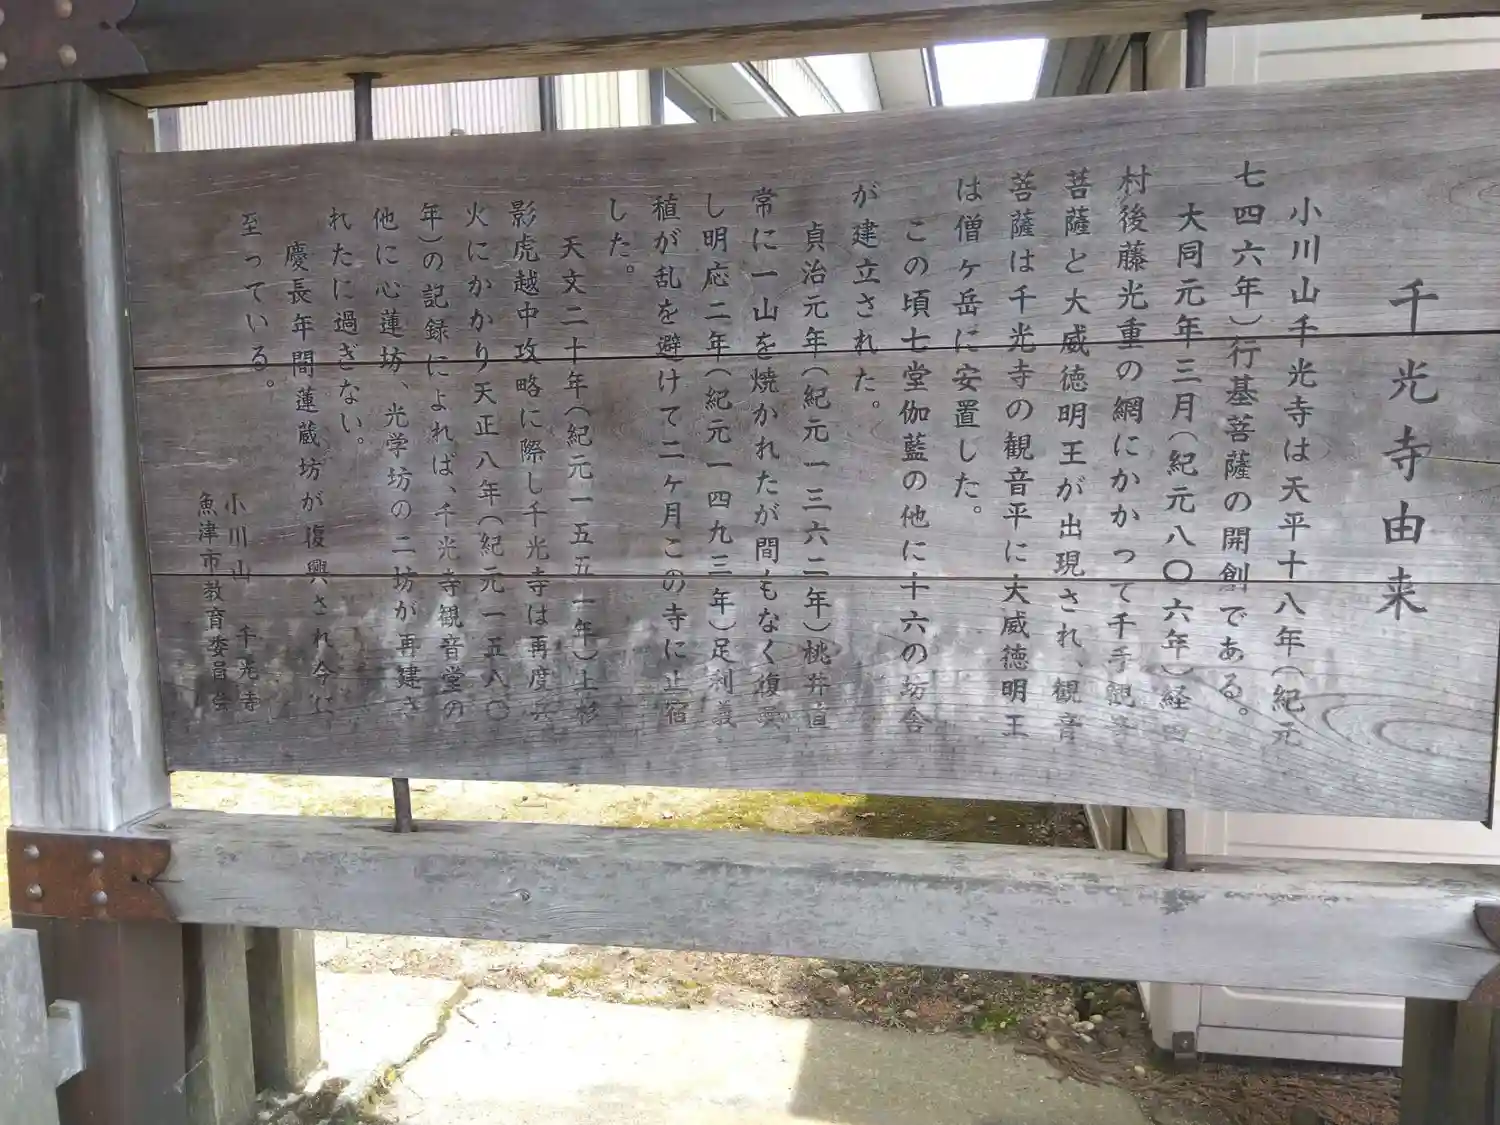 千光寺由来
小川山千光寺は天平十八年(紀元
七四六年)行基菩薩の開創である。
大同元年三月(紀元八〇六年)経田
村後藤光重の網にかかって千手観音
菩薩と大威徳明王が出現され、観音
菩薩は千光寺の観音平に大威徳明王
は僧ヶ岳に安置した。
この頃七堂伽藍の他に十六の坊舎
が建立された。
貞治元年(紀元一三六二年)桃井直
常に一山を焼かれたが間もなく復興
し明応二年(紀元一四九三年)足利義
稙が乱を避けて二ヶ月この寺に止宿
した。
天文二十年(紀元一五五一年)上杉
影虎越中攻略に際し千光寺は再度兵
火にかかり天正八年(紀元一五八〇
年)の記録によれば、千光寺観音堂の
他に心蓮坊、光学坊の二坊が再建さ
れたに過ぎない。
慶長年間蓮蔵坊が復興され今に、
至っている。
小川山 千光寺
魚津市教育委員会